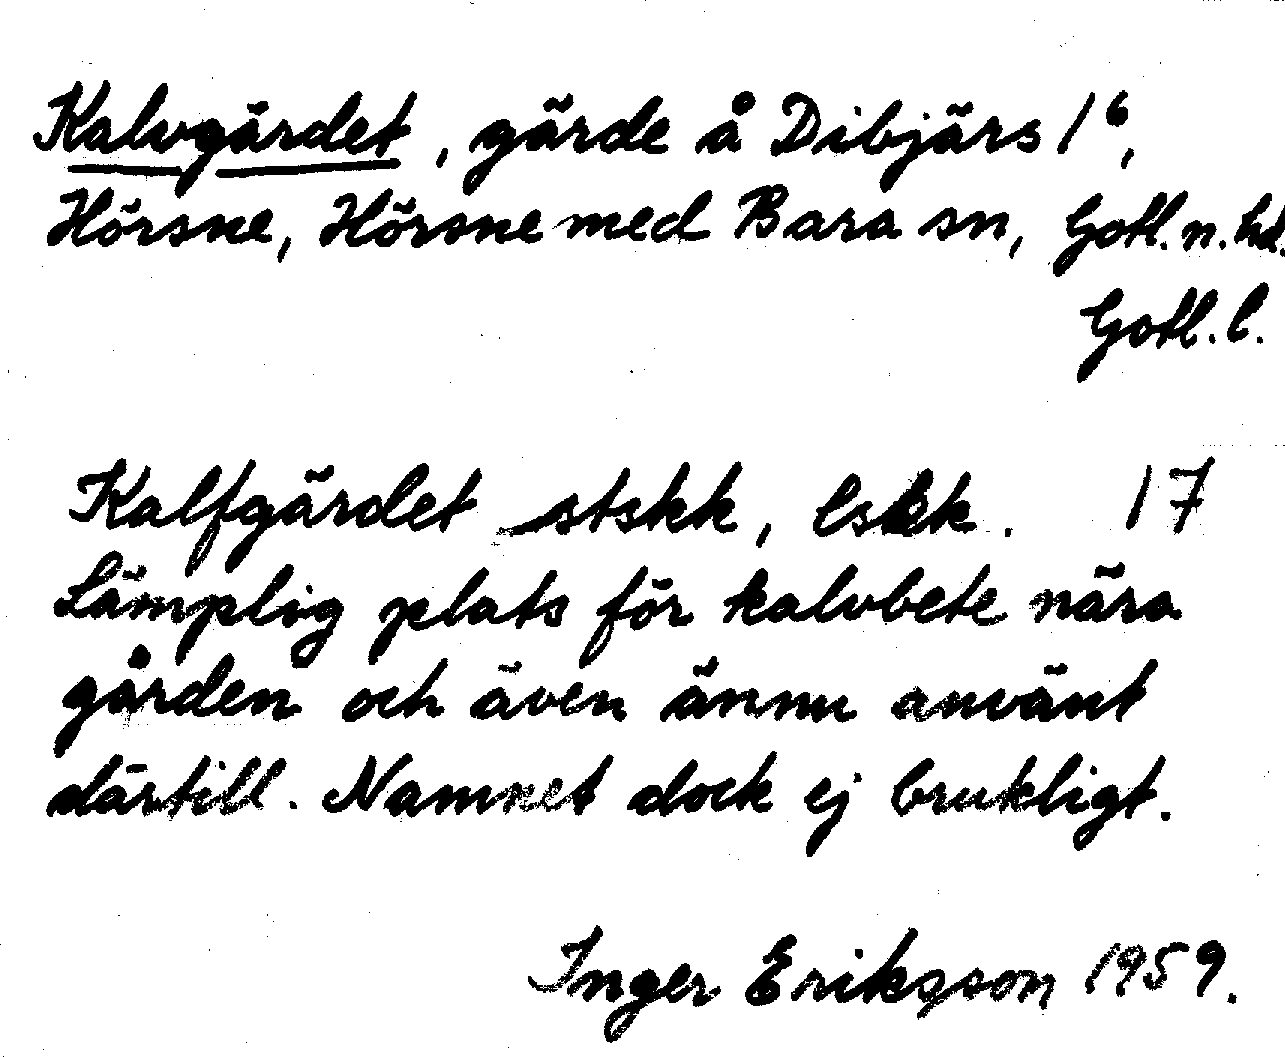 Kalvgärdet, gärde å Dibjärs 1⁶,
Hörsne, Hörsne med Bara sn, Gotl. n. hd.
Gotl. l.
Kalfgärdet stskk, lskk. 17
Lämplig plats för kalvbete nära
gården och även ännu använt
därtill. Namnet dock ej brukligt.
Inger Eriksson 1959.